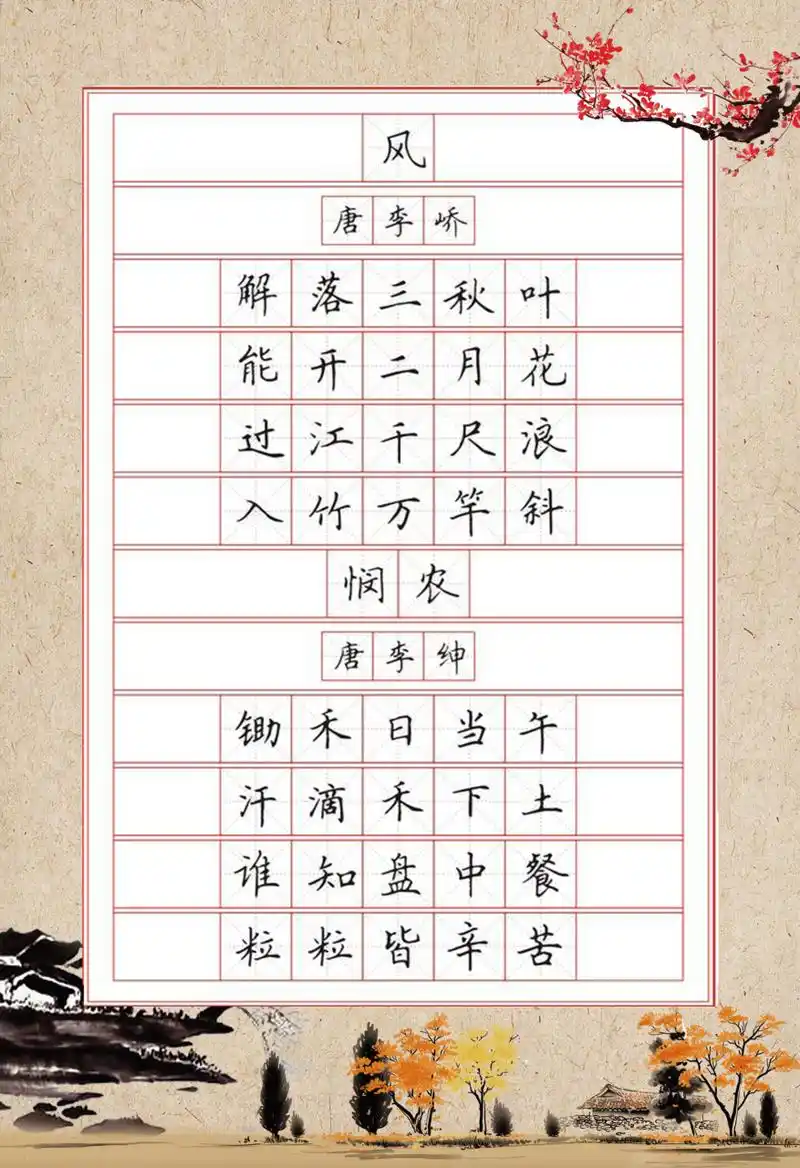 风
唐李峤
解落三秋叶
能开二月花
过江千尺浪
入竹万竿斜
悯农
唐李绅
锄禾日当午
汗滴禾下土
谁知盘中餐
粒粒皆辛苦